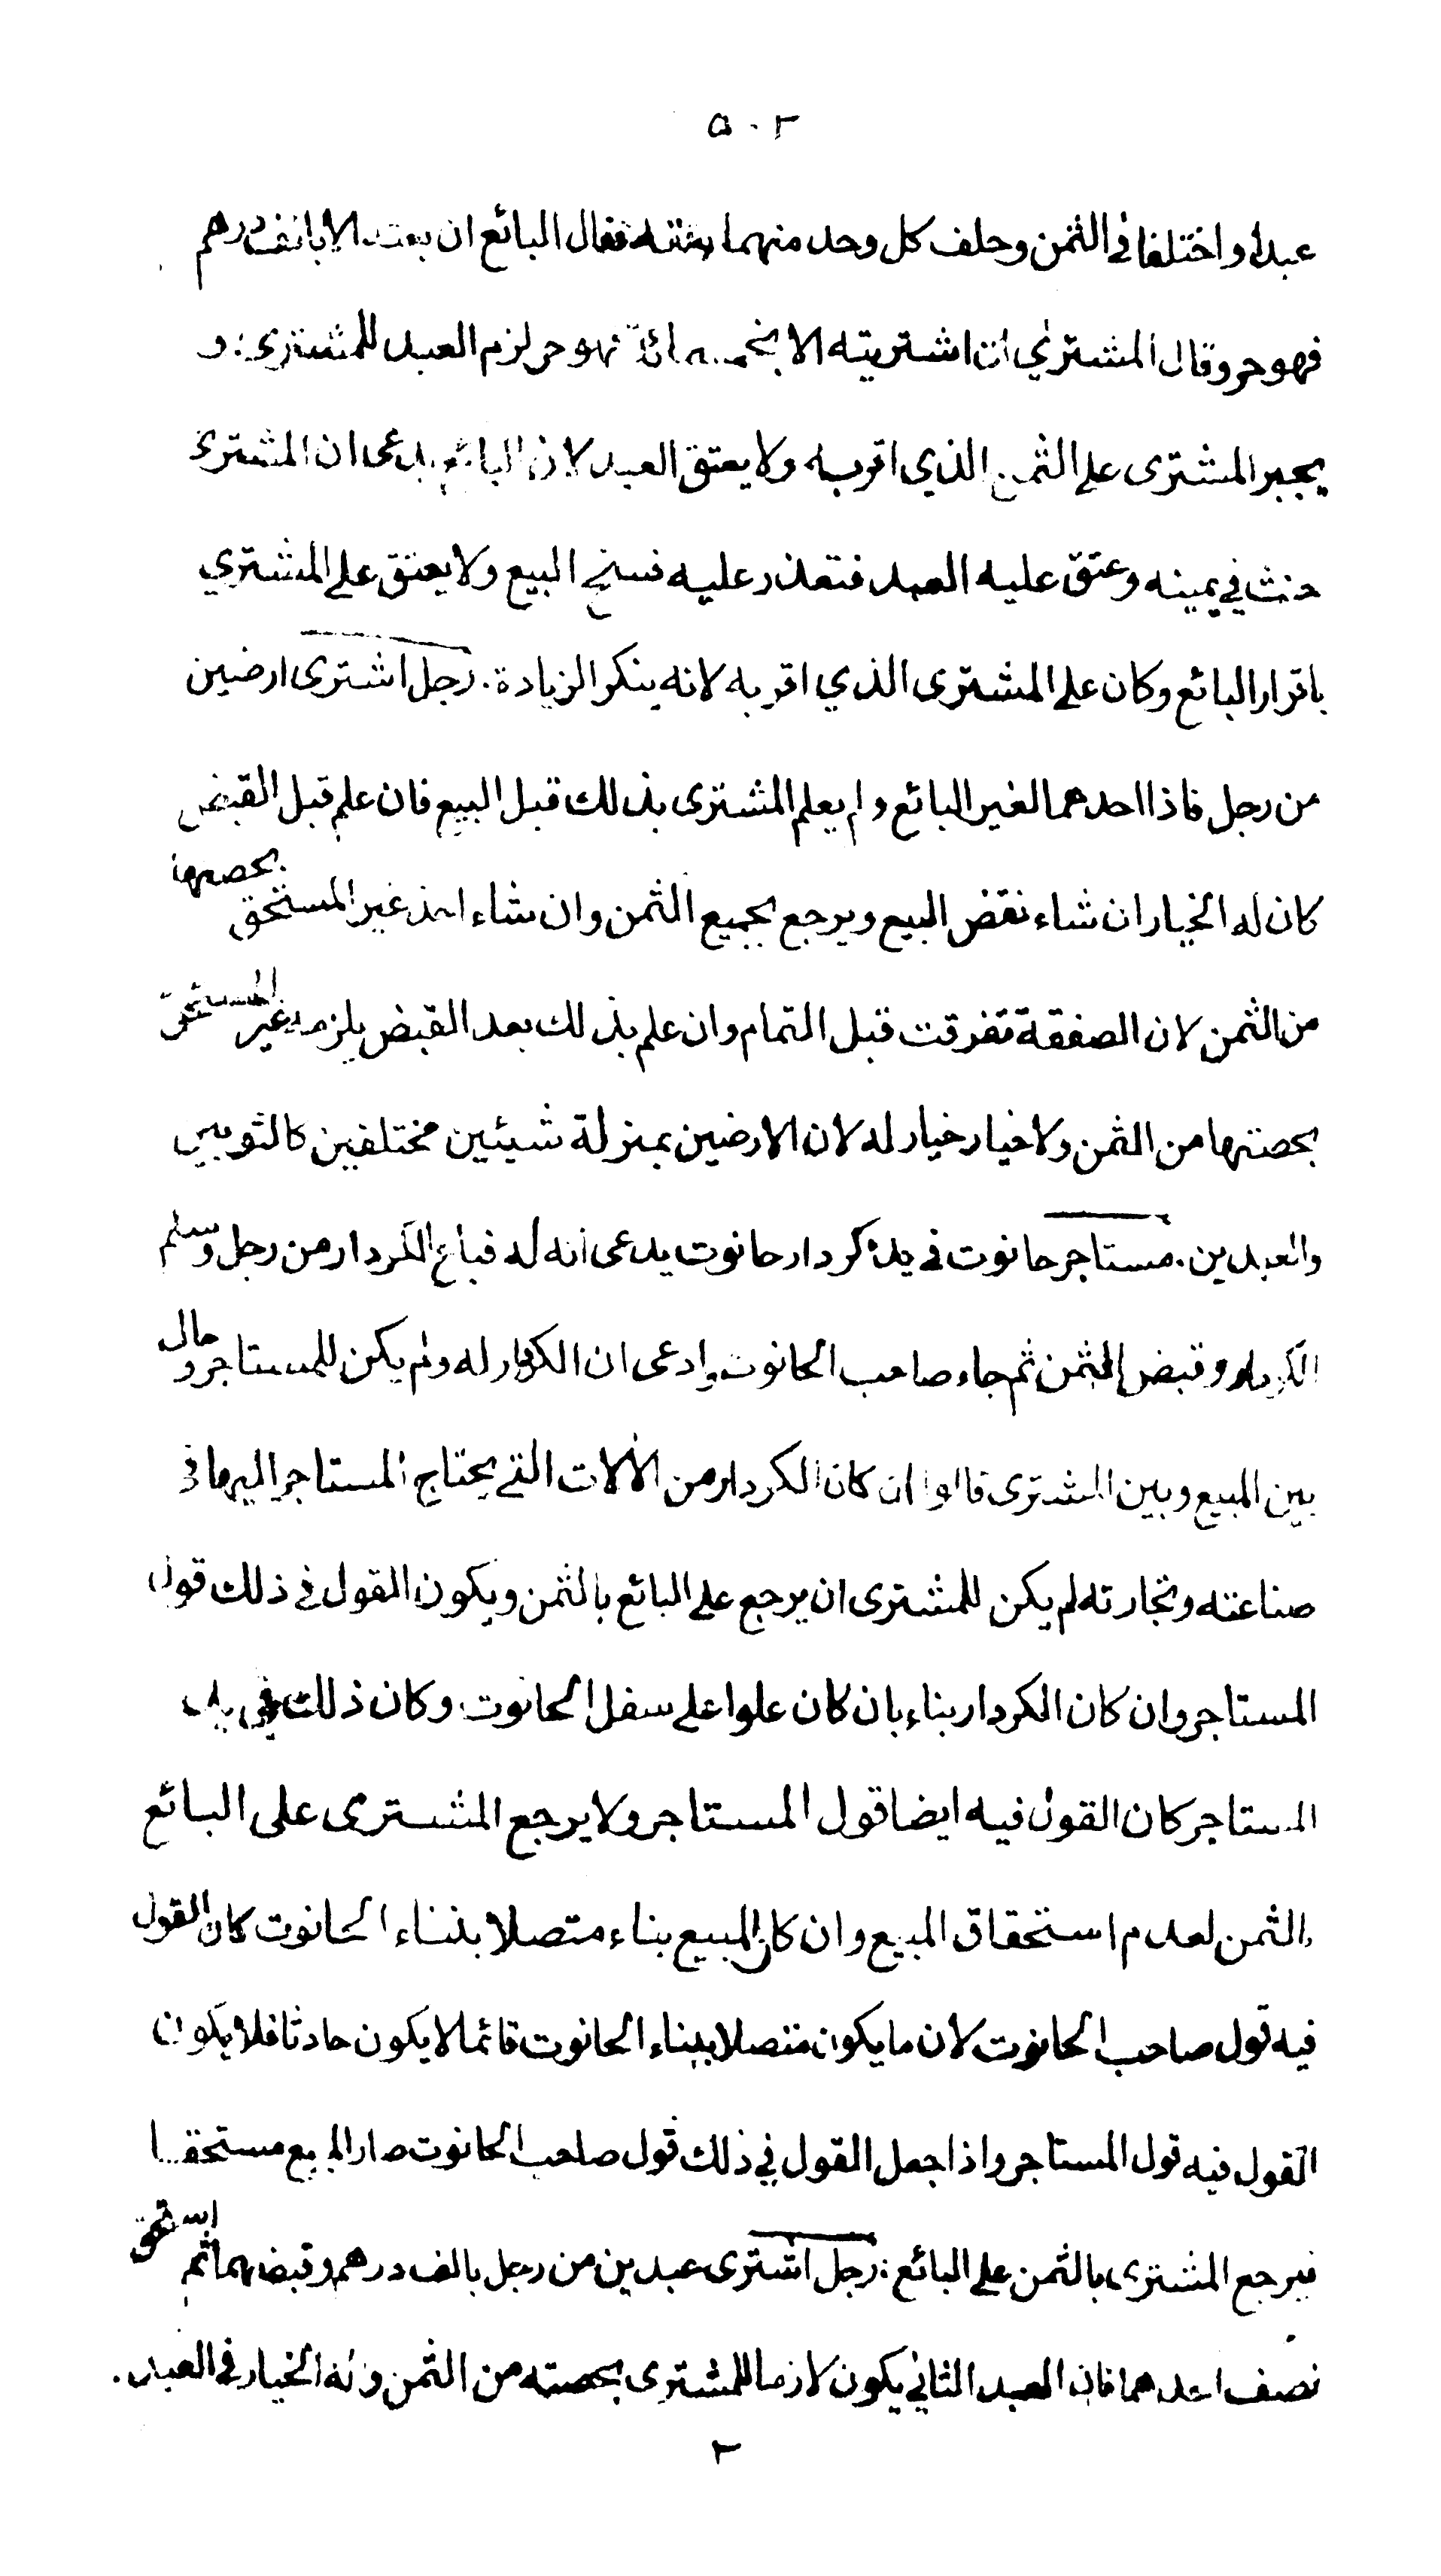 ٥٠٢
عبدا واختلفا في الثمن وحلف كل وحد منهما بعتقه فقال البائع ان بعته الا بالف درهم
فهو حر وقال المشتري ان اشتريته الا بخمسمائة فهو حر لزم العبد للمشتري؛ و
يجبر المشترى على الثمن الذي اقر به ولا يعتق العبد لان البائع يدعى ان المشترى
حنث في يمينه وعتق عليه العبد فتعذر عليه فسخ البيع ولا يعتق على المشتري
باقرار البائع وكان على المشترى الذي اقر به لانه ينكر الزيادة. رجل اشترى ارضين
من رجل فاذا احدهما لغير البائع ولم يعلم المشترى بذلك قبل البيع فان علم قبل القبض
كان له الخيار ان شاء نقض البيع ويرجع بجميع الثمن وان شاء اخذ غير المستحق بحصتها
من الثمن لان الصفقة تفرقت قبل التمام وان علم بذلك بعد القبض يلزمه غير المستحق
بحصتها من الثمن ولا خيار خيار له لان الارضين بمنزلة شيئين مختلفين كالثوبين
والعبدين. مستاجر حانوت في يده كردار حانوت يدعى انه له فباع الكردار من رجل وسلم
الكردار وقبض الثمن ثم جاء صاحب الحانوت وادعى ان الكردار له ولم يكن للمستاجر وحال
بين المبيع وبين المشترى قالوا ان كان الكردار من الآلات التي يحتاج المستاجر اليها في
صناعته وتجارته لم يكن للمشترى ان يرجع على البائع بالثمن ويكون القول في ذلك قول
المستاجر وان كان الكردار بناء بان كان علوا على سفل الحانوت وكان ذلك في يد
المستاجر كان القول فيه ايضا قول المستاجر ولا يرجع المشترى على البائع
بالثمن لعدم استحقاق المبيع وان كان المبيع بناء متصلا ببناء الحانوت كان القول
فيه قول صاحب الحانوت لان ما يكون متصلا ببناء الحانوت قائما لا يكون حادثا فلا يكون
القول فيه قول المستاجر واذا جعل القول في ذلك قول صاحب الحانوت صار المبيع مستحقا
فيرجع المشترى بالثمن على البائع: رجل اشترى عبدين من رجل بالف درهم وقبضهما ثم استحق
نصف احدهما فان العبد الثاني يكون لازما للمشترى بحصته من الثمن وله الخيار في العبد.
٢